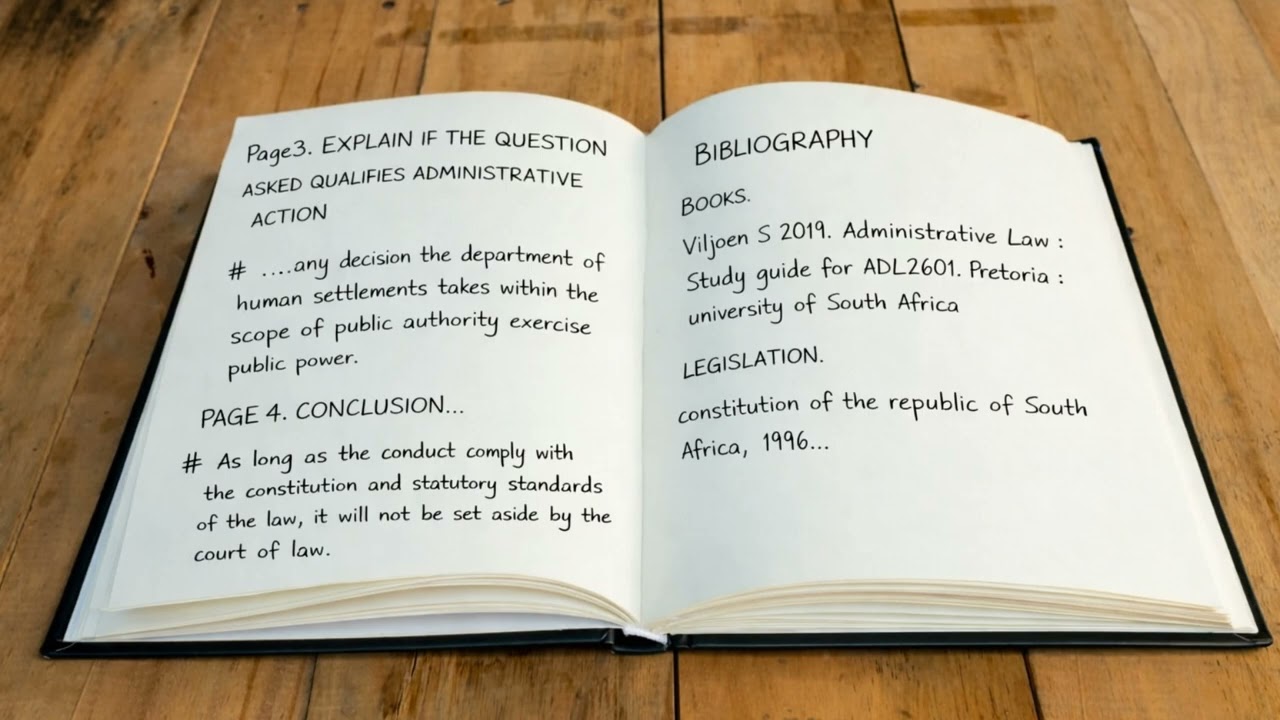 Page3. EXPLAIN IF THE QUESTION
ASKED QUALIFIES ADMINISTRATIVE
ACTION
# ....any decision the department of
human settlements takes within the
scope of public authority exercise
public power.
PAGE 4. CONCLUSION...
# As long as the conduct comply with
the constitution and statutory standards
of the law, it will not be set aside by the
court of law.
BIBLIOGRAPHY
BOOKS.
Viljoen S 2019. Administrative Law :
Study guide for ADL2601. Pretoria :
university of South Africa
LEGISLATION.
constitution of the republic of South
Africa, 1996...